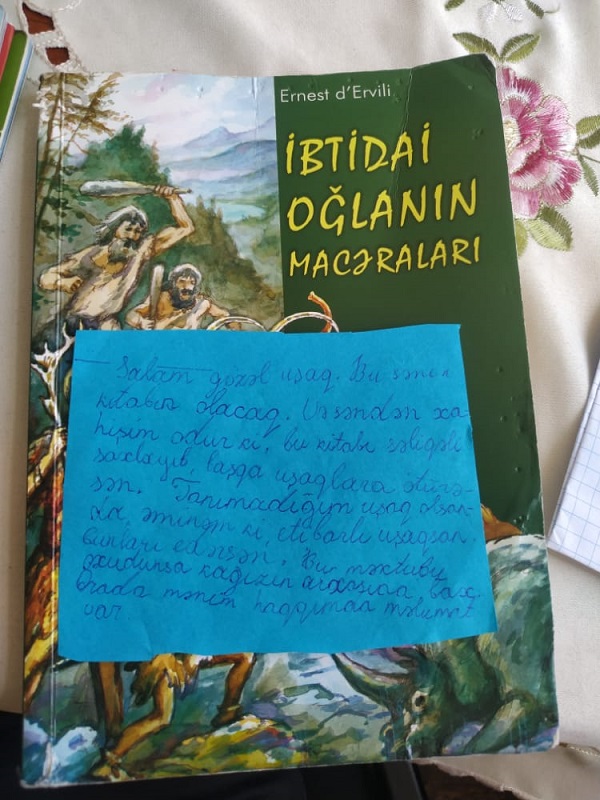 Ernest d'Ervili
İBTİDAİ
OĞLANIN
MACƏRALARI
Salam gözəl uşaq. Bu sənin
kitabın olacaq. Və səndən xa-
hişim odur ki, bu kitabı səliqəli
saxlayıb, başqa uşaqlara ötürə-
sən. Tanımadığım uşaq olsan-
da, əminəm ki, etibarlı uşaqsan,
bunları edərsən. Bu məktubu
oxudunsa kağızın arxasına bax,
orada mənim haqqımda məlumat
var.